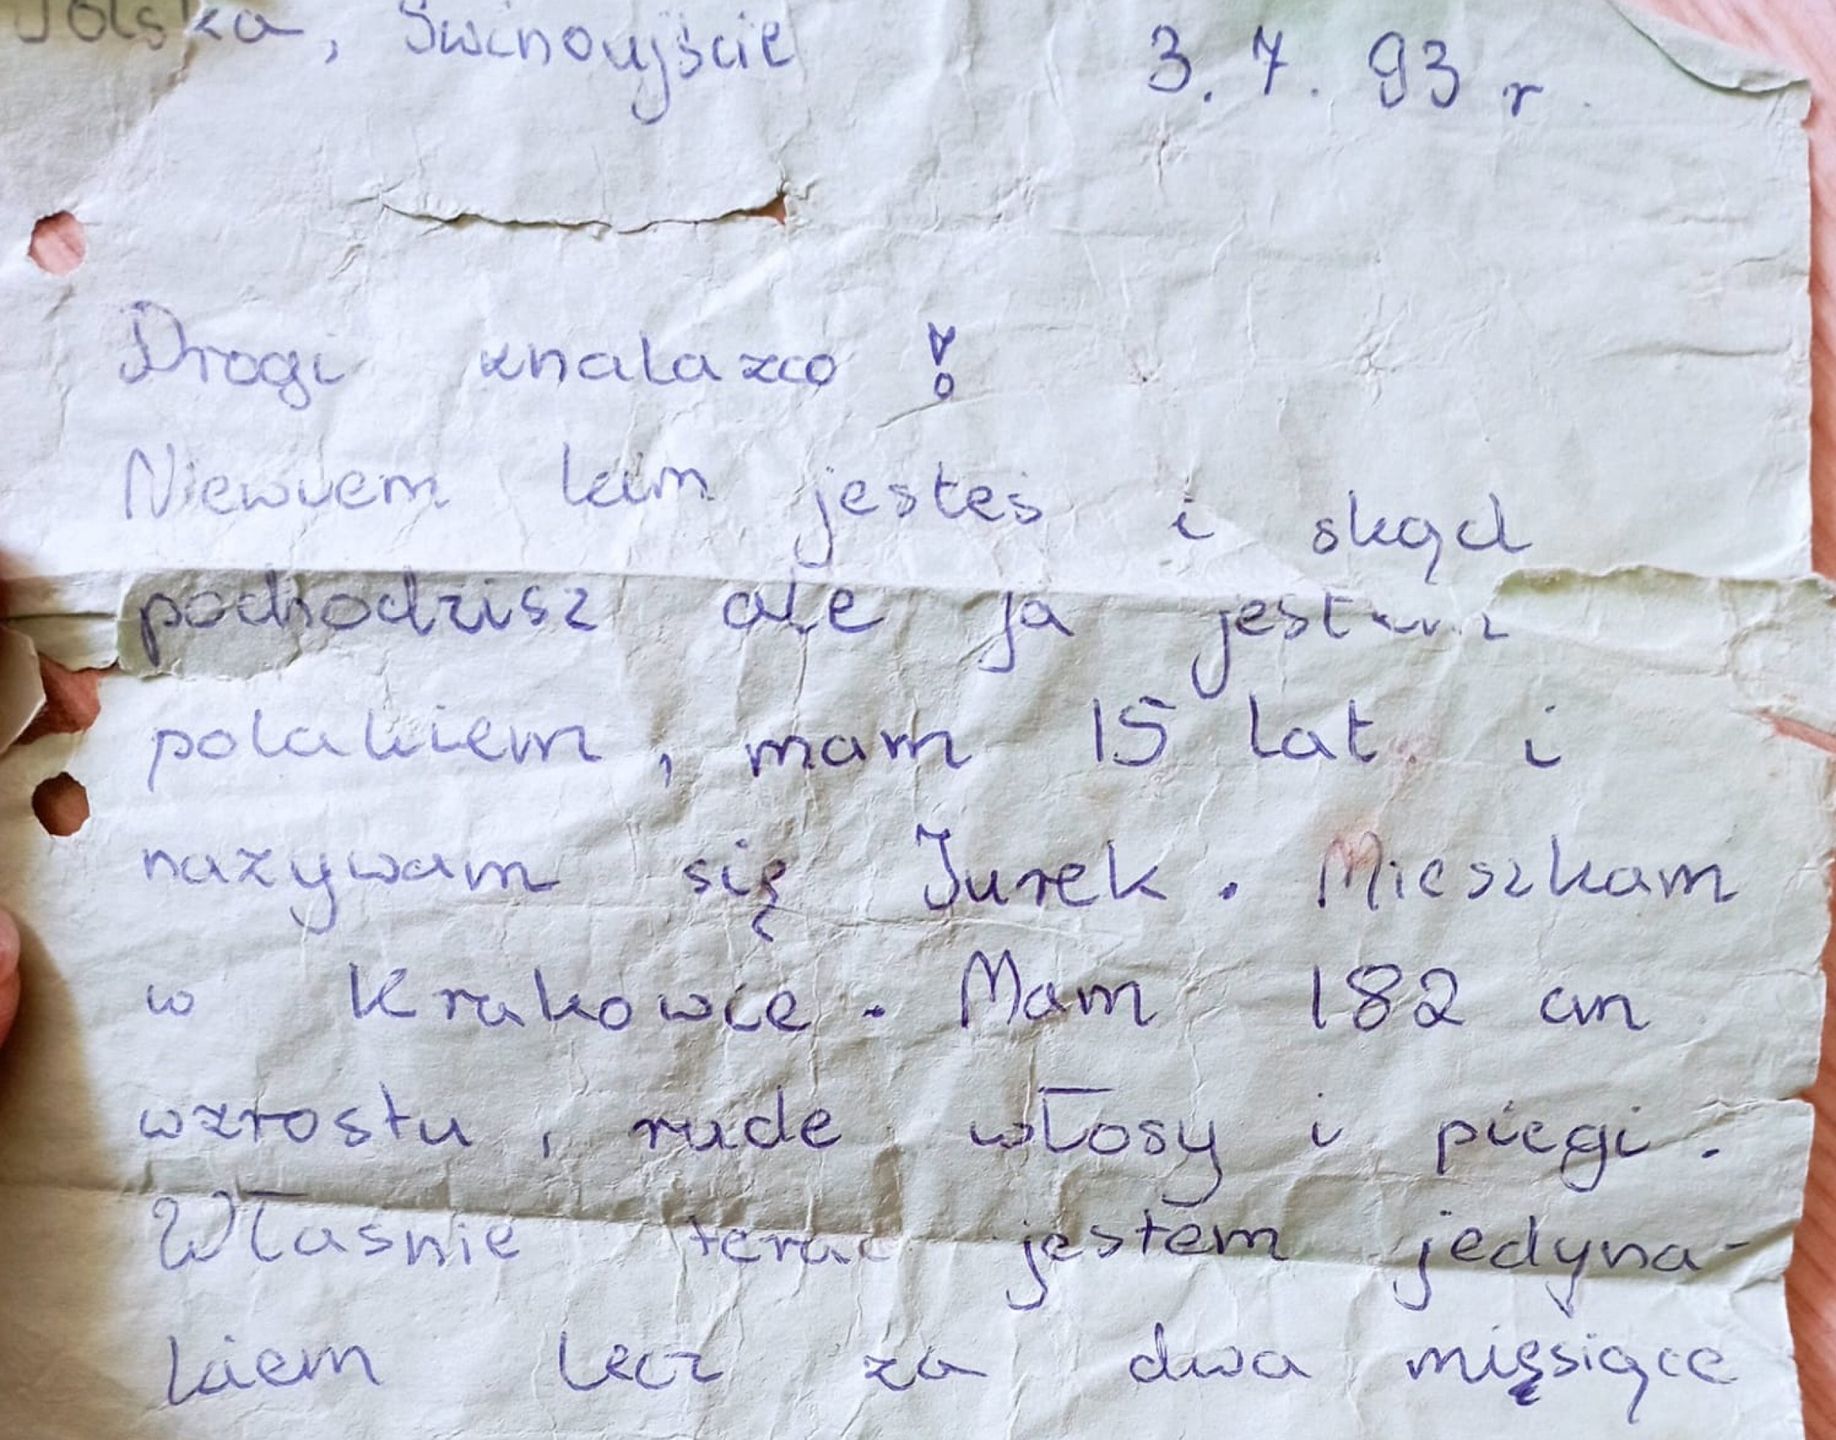 Polska, Świnoujście 3.7.93 r.
Drogi znalazco !
Niewiem kim jesteś i skąd
pochodzisz ale ja jestem
polakiem, mam 15 lat i
nazywam się Jurek. Mieszkam
w Krakowie. Mam 182 cm
wzrostu, rude włosy i piegi.
Właśnie teraz jestem jedyna-
kiem lecz za dwa mięsiące